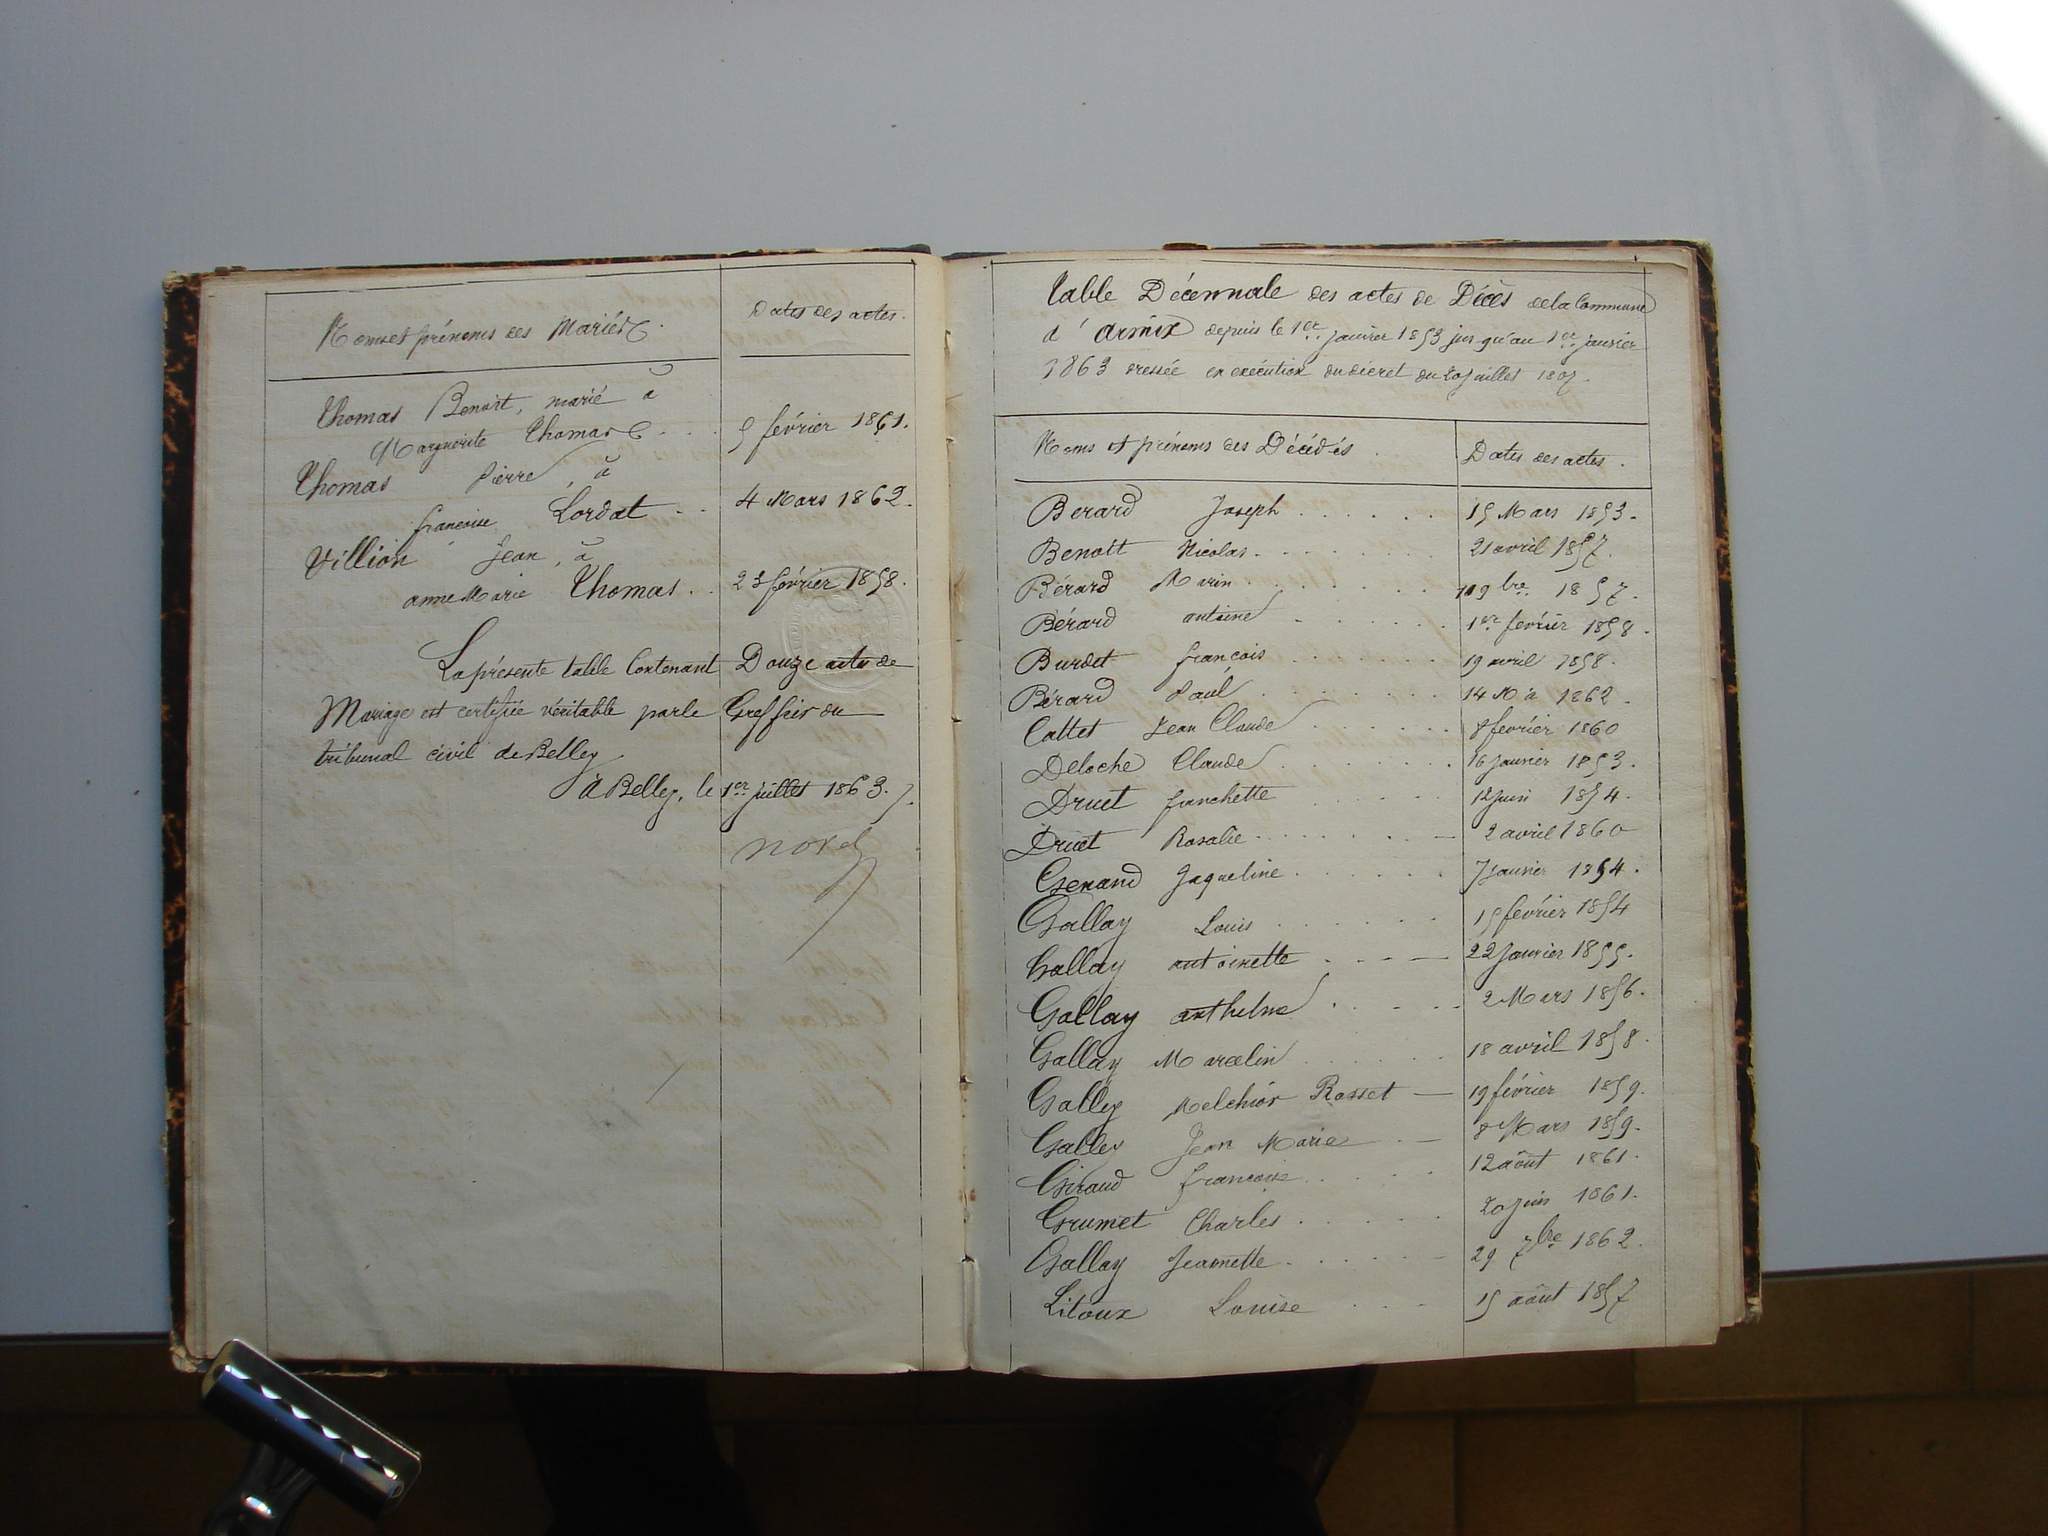 Noms et prénoms des Mariés. Dates des actes.
Thomas Benoit, marié à
Marguerite Thomas . . . 5 février 1861.
Thomas Pierre, à
françoise Lordat . . 4 Mars 1862.
Villion Jean, à
anne Marie Thomas . . 23 février 1858.
La présente table Contenant Douze actes de
Mariage est certifiée véritable par le Greffier du
tribunal civil de Belley
à Belley, le 1er juillet 1863.
Table Décennale des actes de Décès de la Commune
d'armix depuis le 1er janvier 1853 jusqu'au 1er janvier
1863 dressée en exécution du décret du 20 juillet 1807.
Noms et prénoms des Décédés. Dates des actes.
Berard Joseph . . . . . . 15 Mars 1853.
Benoit Nicolas . . . . . . . 21 avril 1857.
Bérard Marin . . . . . . . 9bre 1857.
Bérard antoine . . . . . . 1er février 1858.
Burdet françois . . . . . . . 19 avril 1858.
Bérard Paul . . . . . . . 14 1862.
Cattet Jean Claude . . . . . . 8 février 1860
Deloche Claude . . . . . . . 16 janvier 1853.
Druet franchette . . . . . 12 juin 1854.
Druet Rosalie . . . . . . . 2 avril 1860
Genand Jaqueline . . . . . . 7 janvier 1854.
Gallay Louis . . . . . . . 15 février 1854
Gallay antoinette . . . . 22 Janvier 1855.
Gallay anthelme . . . . 2 Mars 1856.
Gallay Marcelin . . . . . 18 avril 1858.
Galley Melchior Rosset — 19 février 1859.
Galley Jean Marie . — 8 Mars 1859.
Giraud françoise . . . . . 12 août 1861.
Grumet Charles . . . . . 20 juin 1861.
Gallay Jeannette . . . . . 29 7bre 1862.
Litoux Louise . . . 15 août 1857